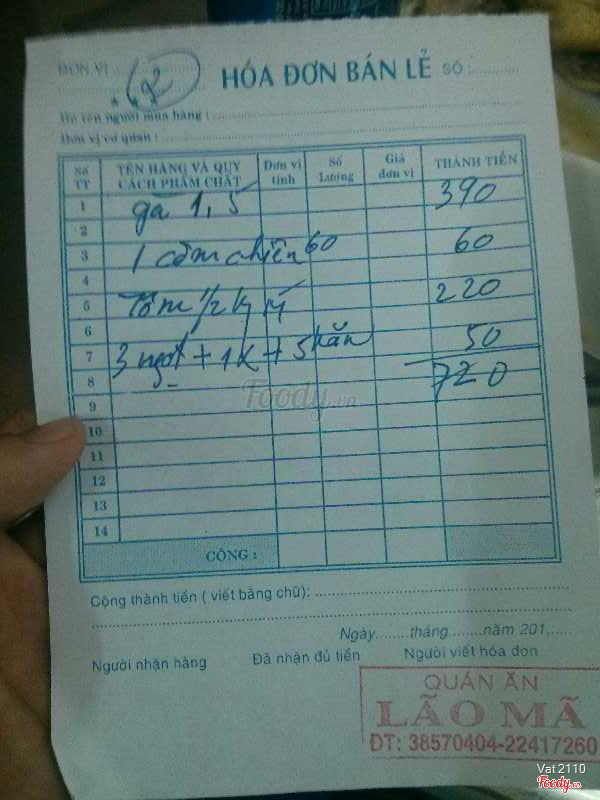 ĐƠN VỊ 2 HÓA ĐƠN BÁN LẺ SỐ :...........
Họ tên người mua hàng :
Đơn vị cơ quan :
Số TT TÊN HÀNG VÀ QUY CÁCH PHẨM CHẤT Đơn vị tính Số Lượng Giá đơn vị THÀNH TIỀN
1 gà 1,5 390
2
3 1 cơm chiên 60 60
4
5 Tôm 1/2 ký 220
6
7 3 ngọt + 1K + 5 khăn 50
8 720
9
10
11
12
13
14
CỘNG :
Cộng thành tiền ( viết bằng chữ): 
Ngày........tháng........năm 201......
Người nhận hàng Đã nhận đủ tiền Người viết hóa đơn
QUÁN ĂN
LÃO MÃ
ĐT: 38570404-22417260
Foody.vn
Vat2110
Foody.vn